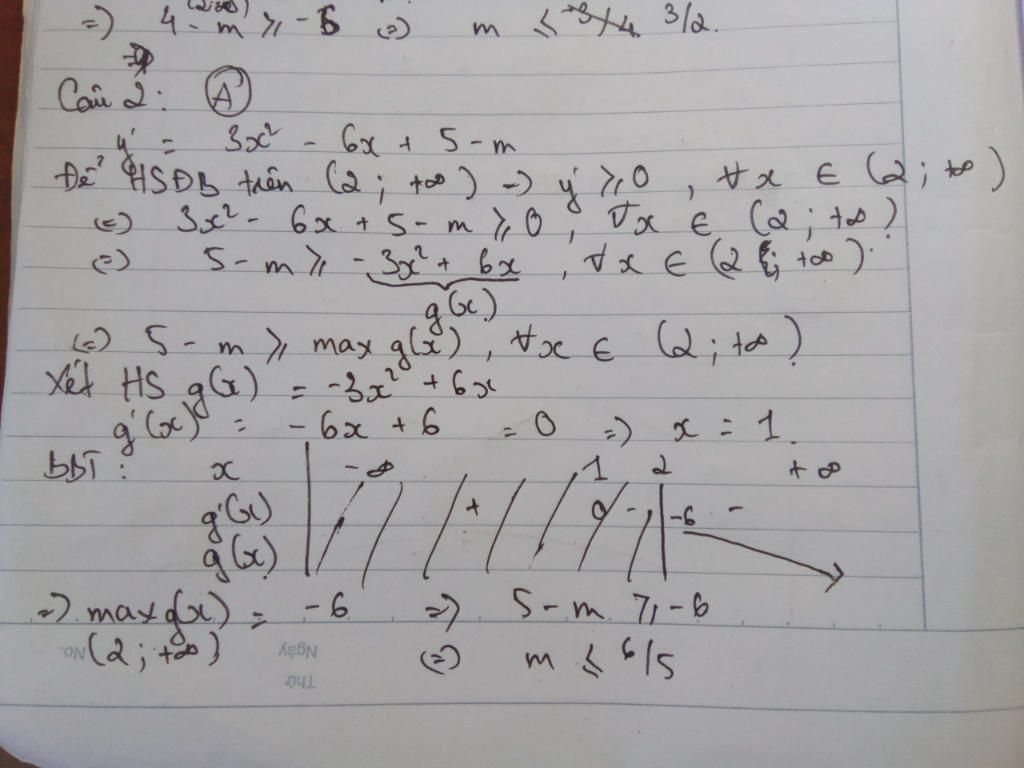 =) 4 - m ⩾ -6 (=) m ⩽ 3/2.
Câu 2: A
y' = 3x² - 6x + 5 - m
Để HSĐB trên (2 ; +∞) => y' ⩾ 0 , ∀x ∈ (2 ; +∞)
(=) 3x² - 6x + 5 - m ⩾ 0, ∀x ∈ (2 ; +∞)
(=) 5 - m ⩾ -3x² + 6x , ∀x ∈ (2 ; +∞)
g(x)
(=) 5 - m ⩾ max g(x) , ∀x ∈ (2 ; +∞)
Xét HS g(x) = -3x² + 6x
g'(x) = -6x + 6 = 0 =) x = 1.
BBT : x -∞ 1 2 +∞
g'(x) + 0 - -
g(x) -6
=) max g(x) = -6 =) 5 - m ⩾ -6
(2 ; +∞) (=) m ⩽ 6/5
No.
Ngày
Thứ